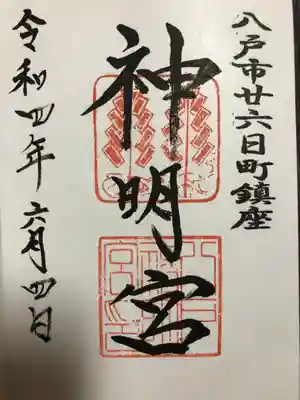 八戸市廿六日町鎮座
神明宮
令和四年六月四日